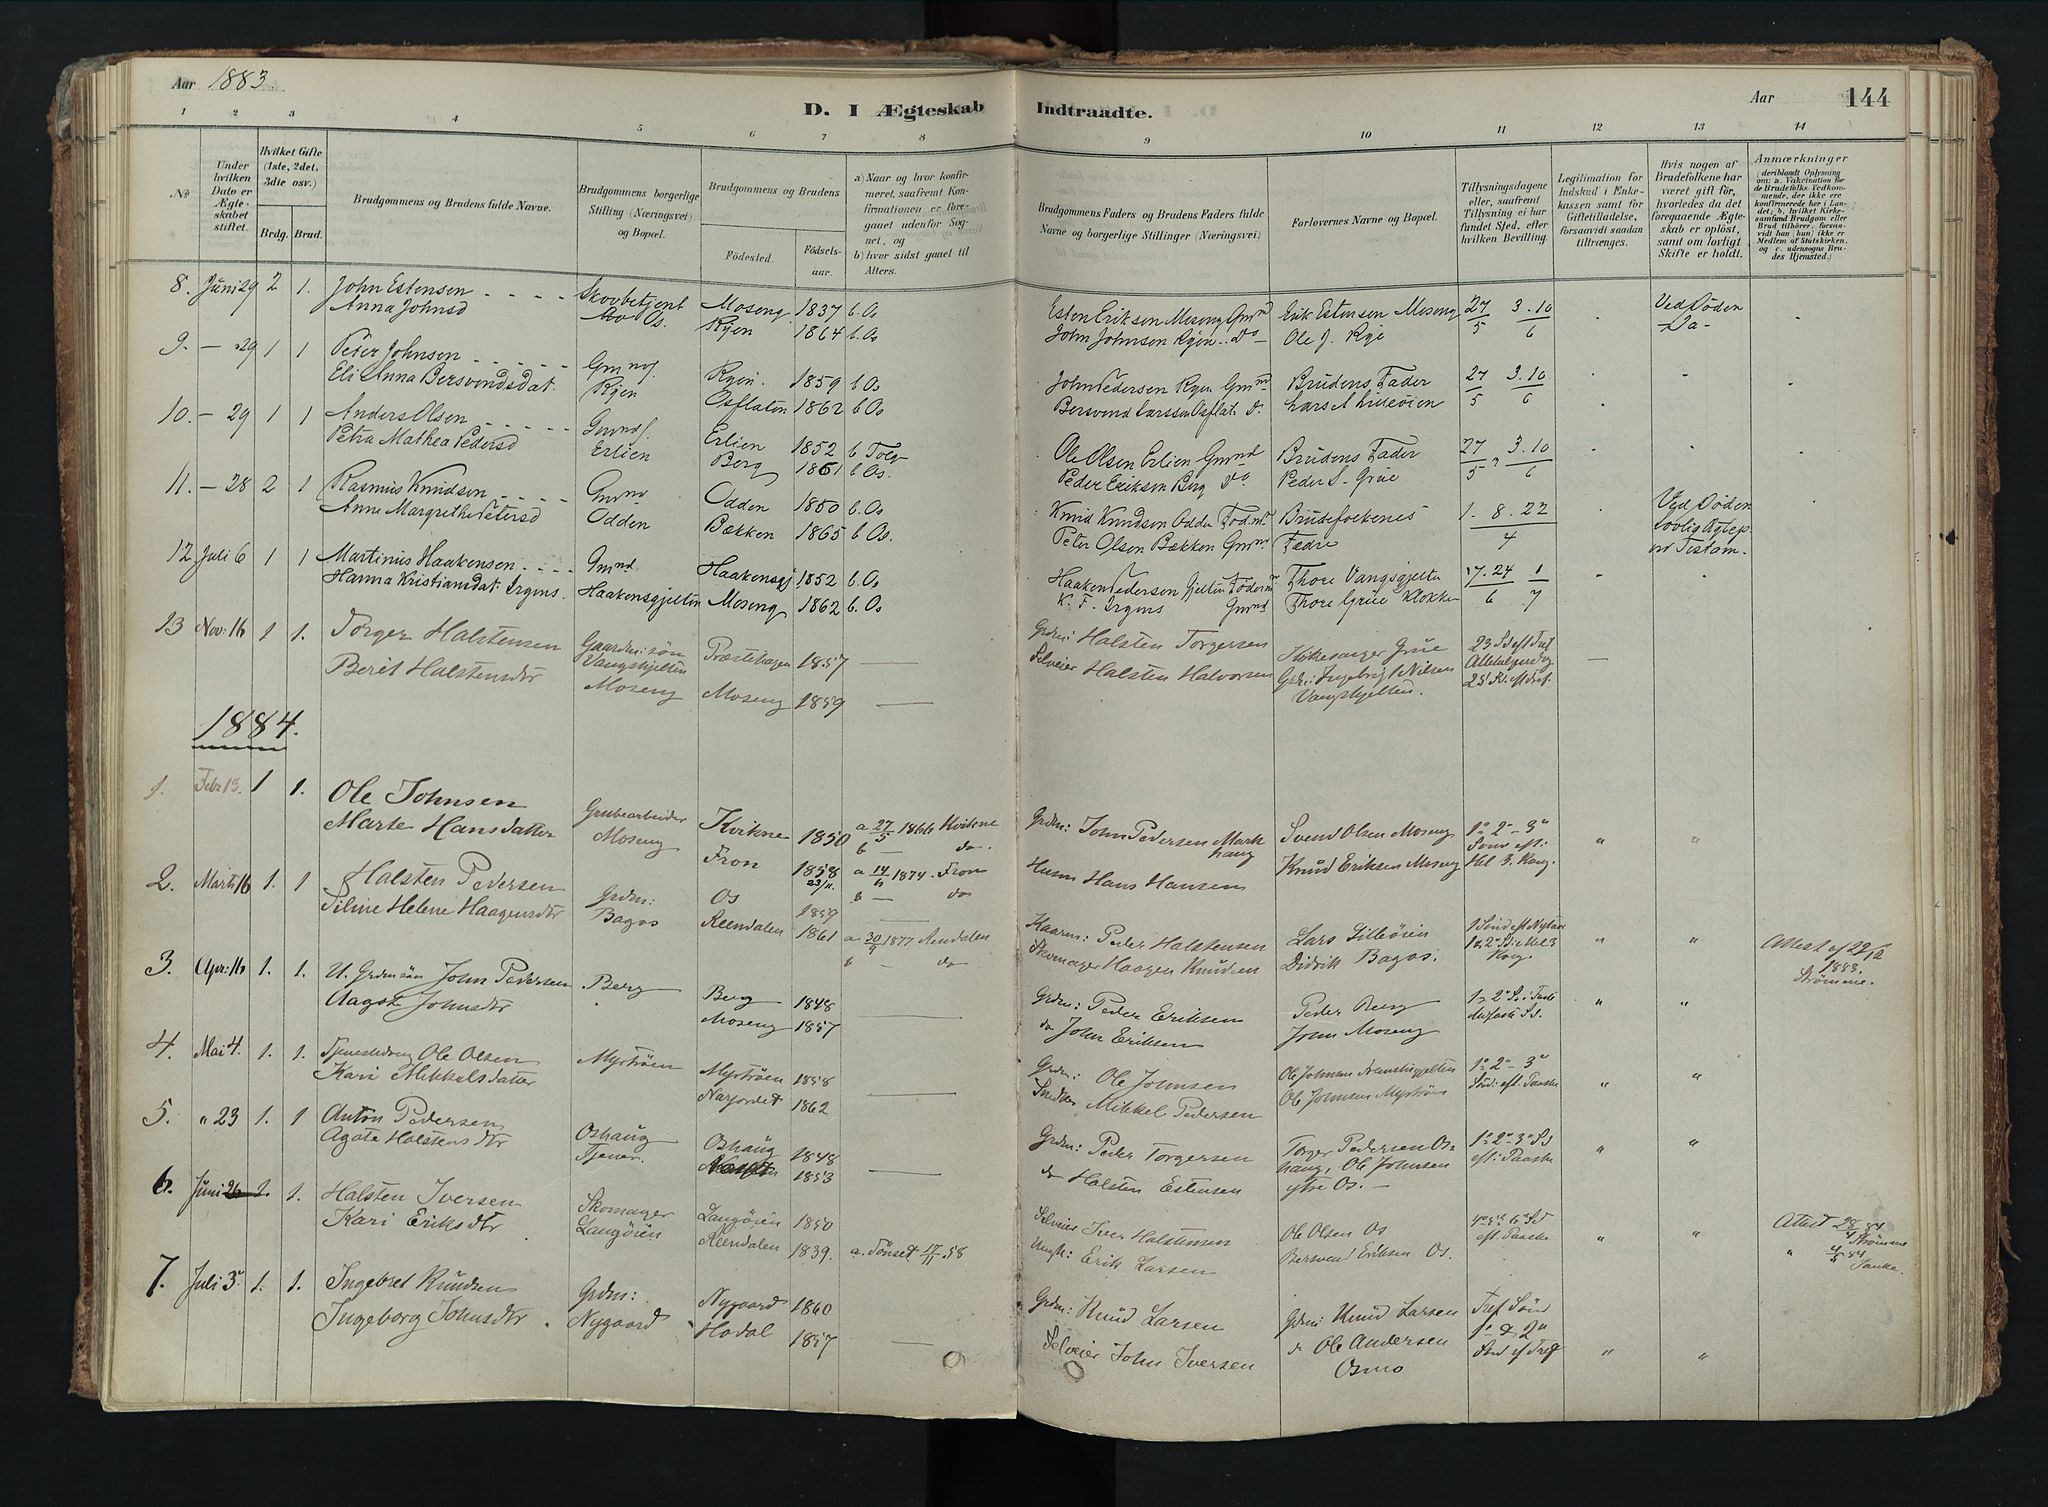 Aar 1883
D. I Ægteskab Indtraadte.
Aar 144
1 2 3 4 5 6 7 8 9 10 11 12 13 14
No
Under hvilken Dato er Ægteskabet stiftet.
Hvilket Gifte (1ste, 2det, 3die osv.)
Brdg. Brud.
Brudgommens og Brudens fulde Navne.
Brudgommens borgerlige Stilling (Næringsvei) og Bopæl.
Brudgommens og Brudens
Fødested. Fødselsaar.
a) Naar og hvor konfirmeret, saafremt Konfirmationen er foregaaet udenfor Sognet, og
b) hvor sidst gaaet til Alters.
Brudgommens Faders og Brudens Faders fulde Navne og borgerlige Stillinger (Næringsvei)
Forlovernes Navne og Bopæl.
Tillysningsdagene eller, saafremt Tillysning ei har fundet Sted, efter hvilken Bevilling.
Legitimation for Indskud i Enkekassen samt for Giftetilladelse, forsaavidt saadan tiltrænges.
Hvis nogen af Brudefolkene har været gift før, hvorledes da det foregaaende Ægteskab er opløst, samt om lovligt Skifte er holdt.
Anmærkninger
(deriblandt Oplysning om: a. Vakcination for de Brudefolks Vedkommende, der ikke ere konfirmerede her i Landet; b. hvilket Kirkesamfund Brudgom eller Brud tilhører, forsaavidt han (hun) ikke er Medlem af Statskirken, og c. udensogns Brudes Hjemsted.)
8. Juni 29 2 1. John Estensen Skovbetjent Moseng 1837 b. Os Esten Eriksen Moseng Gmnd Erik Estensen Moseng 27/5 3.10/6 Ved Døden
Anna Johnsd Os. Ryen 1864 b. Os John Johnsen Ryen do Ole J. Rye Da
9. — 29 1 1 Peter Johnsen Gmnd. Ryen 1859 b Os John Pedersen Ryen Gmnd Brudens Fader 27/5 3.10/6
Eli Anna Bersvendsdat. Ryen Osflaten 1862 b Os Bersvend Larssen Osflat do Lars A Lilleøien
10. — 29 1 1 Anders Olsen Gmnd. Erlien 1852 b Tolg Ole Olsen Erlien Gmnd Brudens Fader 27/5 3.10/6
Petra Mathea Pedersd Erlien Berg 1861 b Os. Peder Eriksen Berg do Peder S. Grue
11. — 28 2 1 Rasmus Knudsen Gmnd Odden 1850 b. Os Knud Knudsen Odden Brudefolkenes 1. 8. 22/4 Ved Døden
Anne Margrethe Petersd Odden Bækken 1865 b Os. Peter Olsen Bækken Gmnd Fædre Testam.
12 Juli 6 1 1 Martinus Haakensen Gmnd. Haakensgj 1852 b. Os Haaken Pedersen Gjelten Thore Vangsgjelten 17. 24/6 1/7
Hanna Kristiansdat. Irgens. Haakensgjelten Moseng 1862 b. Os K. F. Irgens Gmnd Thore Grue Klokker
13 Nov: 16 1 1. Torger Halstensen Gaardm: søn Vangskjelten Præstehagen 1857 — Grdm: Halsten Torgersen Kirkesanger Grue 23 S. eft Tref
Berit Halstensdtr Moseng Moseng 1859 — Selveier Halsten Halvorsen Grdm: Ingebrigt Nilsen Vangskjelten. Allehelgensdag 25 S. eft Tref.
1884.
1. Febr 13. 1 1. Ole Johnsen Grubearbeider Kvikne 1850 a 27/5 1866 Kvikne b — do. Grdm: John Pedersen Markhaug Svend Olsen Moseng 1ⁿ 2ⁿ – 3ⁿ Sønd eft:
Marte Hansdatter Moseng Fron 1858 23/11. a 14/6 1874. Fron b — do Husm Hans Hansen Knud Eriksen Moseng Hel 3. Kong.
2. Marts 16 1. 1 Halsten Pedersen Grdm: Os 1859 — Haarm: Peder Halstensen Lars Lilleøien 1 Sønd eft Nytaar
Siline Helene Haagensdtr Bagos Reendalen 1861 a 30/9 1877 Rendalen b — do Skomager Haagen Knudsen Didrik Bagos. Attest af 22/12 1883. Strømme.
3. Apr: 16 1. 1. U. Grdmsøn John Pedersen Berg Berg 1848 Grdm: Peder Eriksen Peder Berg
Aagot Johnsdtr Moseng 1857 — do John Eriksen John Moseng
4. Mai 4. 1. 1. Tjenestedreng Ole Olsen Myrtrøen Myrtrøen 1858 Grdm: Ole Johnsen 1ⁿ 2ⁿ – 3ⁿ
Kari Mikkelsdatter Narjordet 1862 — Mikkel Pedersen Ole Johnsen Myrtrøen Sønd: eft. Paaske
5. " 23 1. 1 Anton Pedersen Oshaug Oshaug 1848 Grdm: Peder Torgersen Torger Pedersen Oshaug, Ole Johnsen 1ⁿ 2ⁿ – 3ⁿ Sd
Agate Halstensdtr Tjener. 1853 — do Halsten Estensen ytre Os. — eft: Paaske
6. Juni 26 1. 1. Halsten Iversen Skomager Langøien 1850 Selveier Iver Halstensen Ole Olsen Os eft. Paaske Attest 28/4 84 Strømme
Kari Eriksdtr Langøien Reendalen 1839. a. Tønset 17/11 58 Ungk: Erik Larsen Bersvend Eriksen Os.
7. Juli 3 1. 1. Ingebret Knudsen Grdm: Nygaard 1860 Grdm: Knud Larsen Grdm: Knud Larsen Tref Sønd
Ingeborg Johnsdtr Nygaard Hodal 1857 — Selveier John Iversen do Ole Andersen Osmo 1ⁿ & 2ⁿ Sønd ef Tref